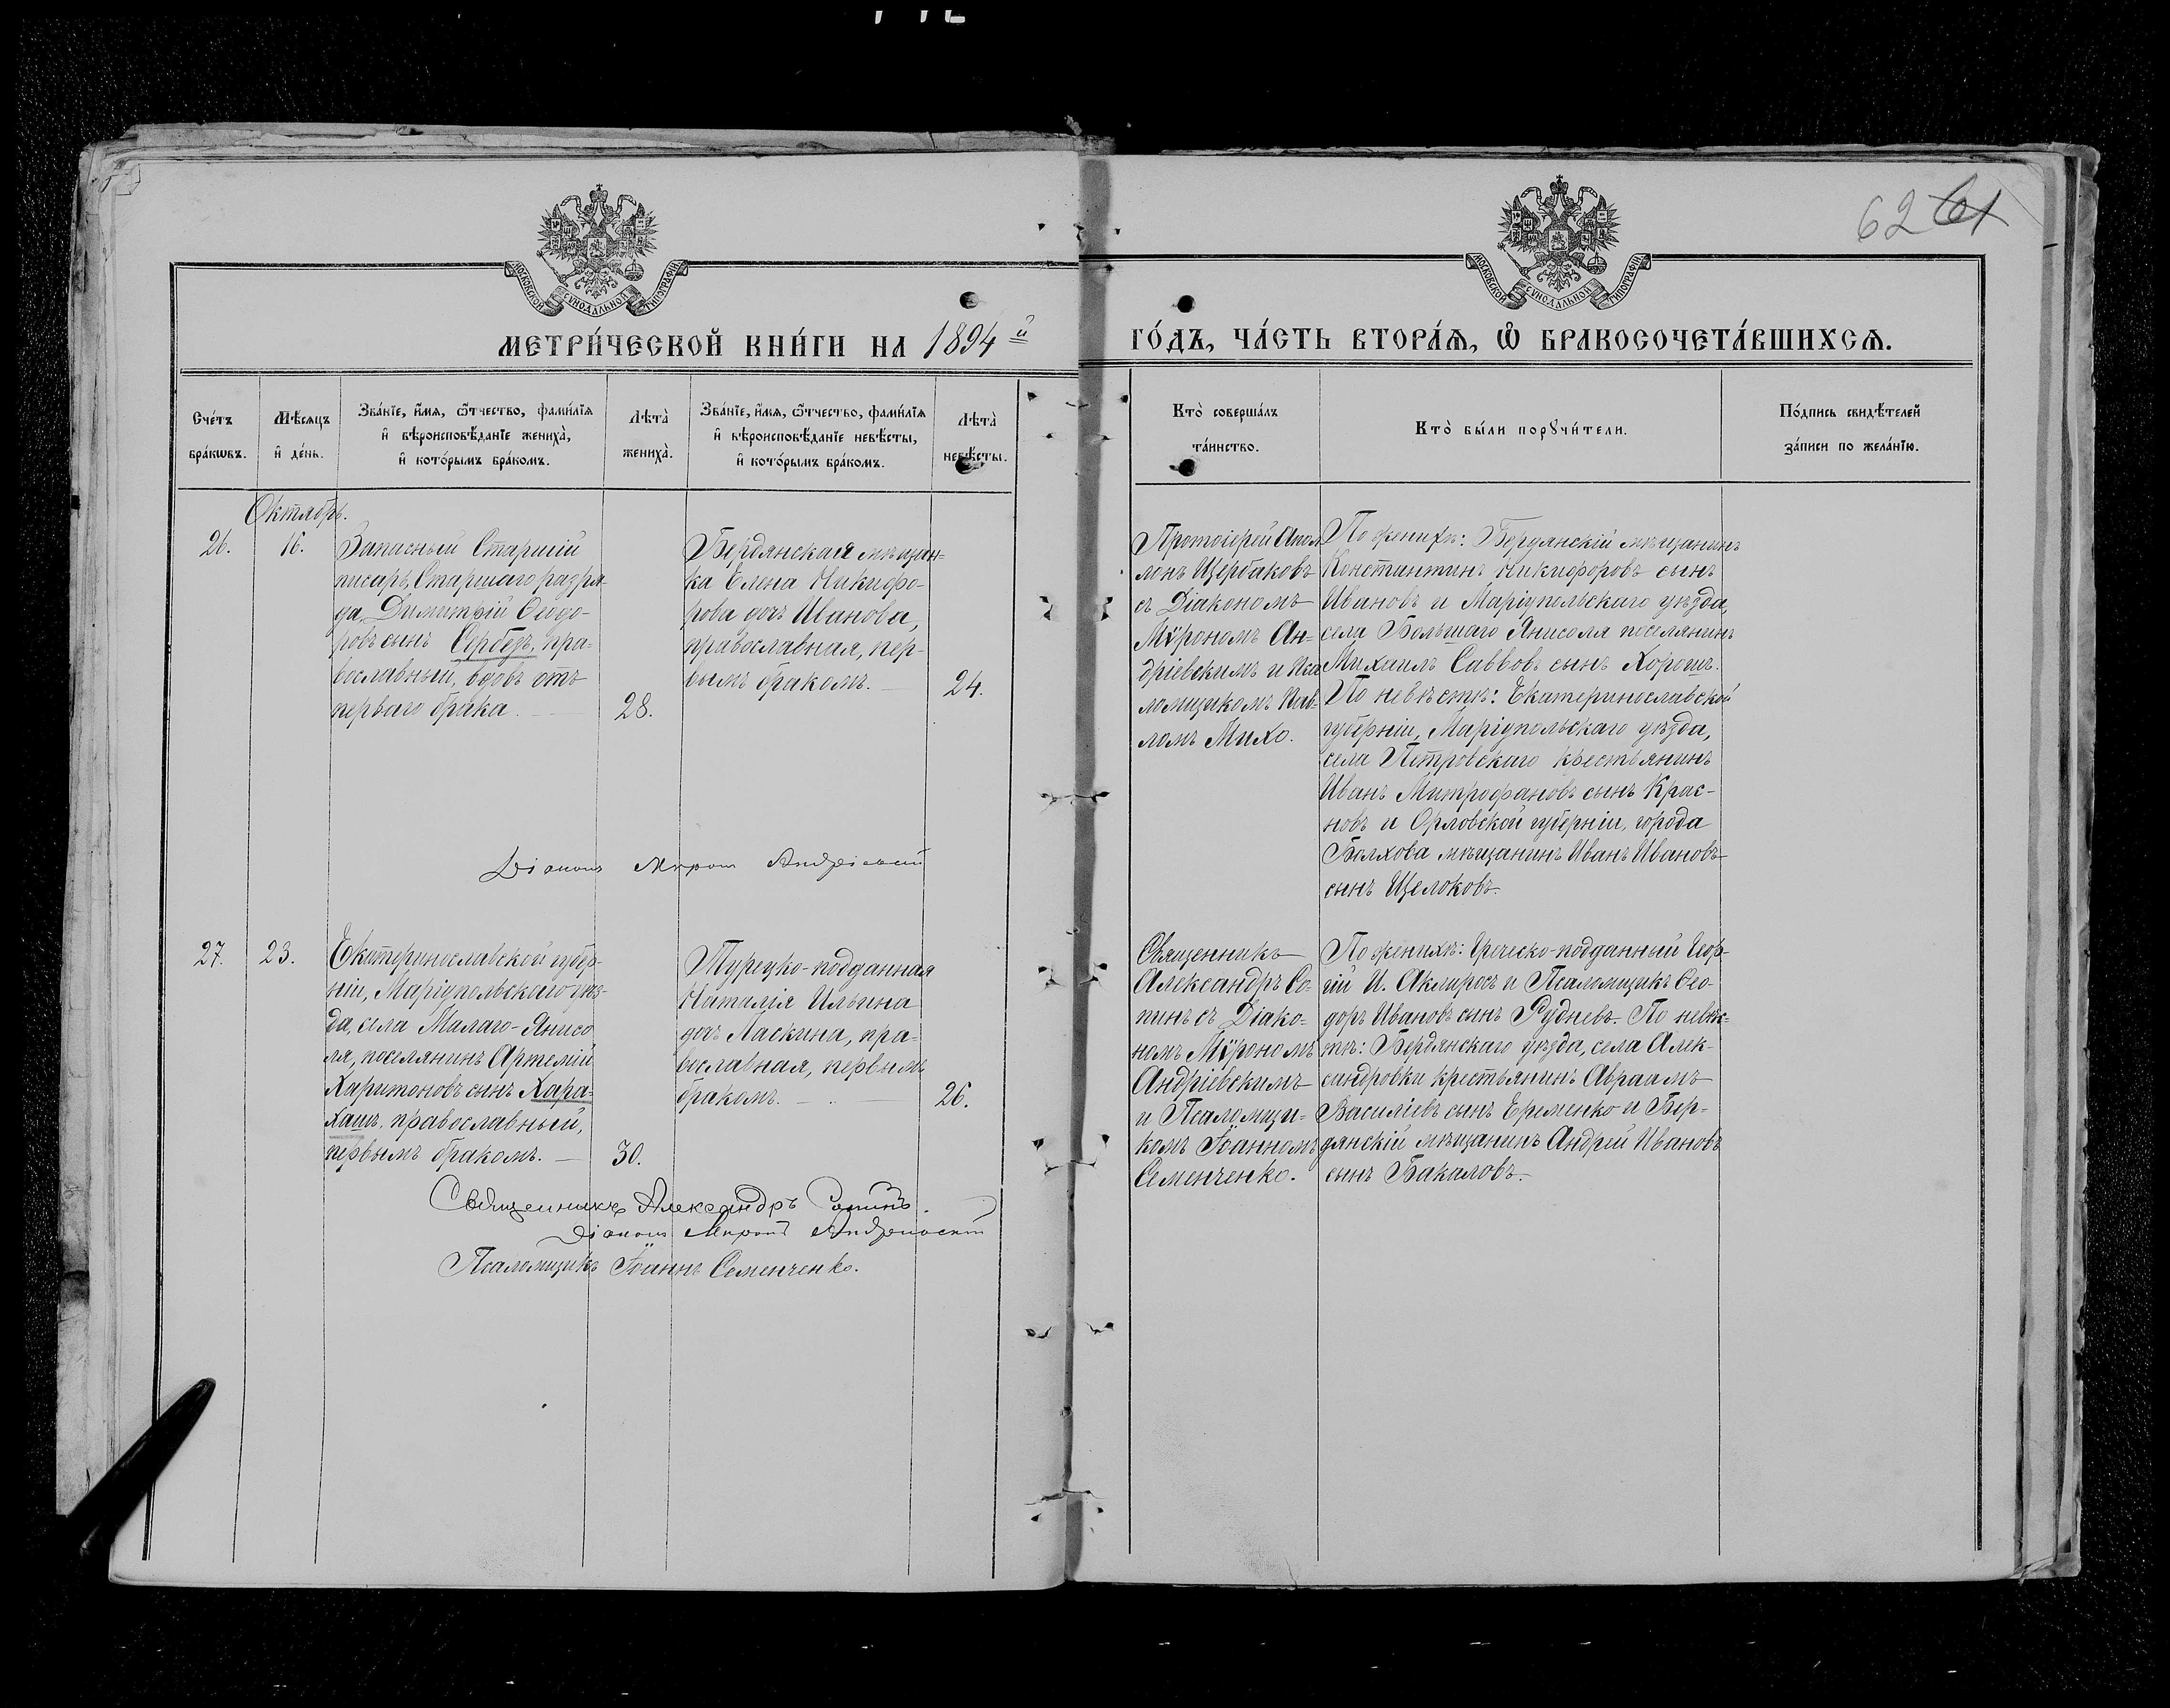 62 61
МОСКОВСКОЙ СѴНОДАЛЬНОЙ ТИПОГРАФІИ
МОСКОВСКОЙ СѴНОДАЛЬНОЙ ТИПОГРАФІИ
МЕТРИ́ЧЕСКОЙ КНИ́ГИ НА 1894й
ГО́ДЪ, ЧА́СТЬ ВТОРА́Ѧ, Ѡ҆ БРАКОСОЧЕТА́ВШИХСѦ.
Сче́тъ бра́кѡвъ.
Мѣ́сѧцъ и҆ де́нь.
Зва́нїе, и҆́мѧ, ѻ҆́тчество, фами́лїѧ и҆ вѣроисповѣ́данїе жениха̀, и҆ кото́рымъ бра́комъ.
Лѣта̀ жениха̀.
Зва́нїе, и҆́мѧ, ѻ҆́тчество, фами́лїѧ и҆ вѣроисповѣ́данїе невѣ́сты, и҆ кото́рымъ бра́комъ.
Лѣта̀ невѣ́сты.
Кто̀ соверша́лъ та́инство.
Кто̀ бы́ли порꙋчи́тели.
По́дпись свидѣ́телей за́писи по жела́нїю.
Октябрь.
26.
16.
Запасный Старшій
писарь, Старшаго разря-
да, Димитрій Ѳеодо-
ровъ сынъ Сербедъ, пра-
вославный, вдовъ отъ
перваго брака.
28.
Бердянская мѣщан-
ка Елена Никифо-
рова дочь Иванова,
православная, пер-
вымъ бракомъ.
24.
Протоіерей Апол-
лонъ Щербаковъ
съ Діакономъ
Мѵрономъ Ан-
дріевскимъ и Пса
ломщикомъ Пав-
ломъ Михо.
По женихѣ: Бердянскій мѣщанинъ
Константинъ Никифоровъ сынъ
Ивановъ и Маріупольскаго уѣзда,
села Большаго Янисоля поселянинъ
Михаилъ Саввовъ сынъ Хорошъ.
По невѣстѣ: Екатеринославской
губерніи, Маріупольскаго уѣзда,
села Петровскаго крестьянинъ
Иванъ Митрофановъ сынъ Крас-
новъ и Орловской губерніи, города
Болхова мѣщанинъ Иванъ Ивановъ
сынъ Щелоковъ.
Діаконъ Миронъ Андріевскій
27.
23.
Екатеринославской губер-
ніи, Маріупольскаго уѣз-
да, села Малаго-Янисо
ля, поселянинъ Артемій
Харитоновъ сынъ Хара-
хашъ, православный,
первымъ бракомъ.
30.
Турецко-подданная
Наталія Ильина
дочь Ласкина, пра-
вославная, первымъ
бракомъ.
26.
Священникъ
Александръ Со-
пинъ съ Діако-
номъ Мѵрономъ
Андріевскимъ
и Псаломщи-
комъ Іоанномъ
Семенченко.
По женихѣ: Греческо-подданный Геор-
гій И. Аклиросъ и Псаломщикъ Ѳео-
доръ Ивановъ сынъ Рудневъ. По невѣс-
тѣ: Бердянскаго уѣзда, села Алек-
сандровки крестьянинъ Авраамъ
Василіевъ сынъ Еременко и Бер-
дянскій мѣщанинъ Андрей Ивановъ
сынъ Бакаловъ.
Священникъ Александръ Сопинъ.
Діаконъ Миронъ Андріевскій
Псаломщикъ Іоаннъ Семенченко.